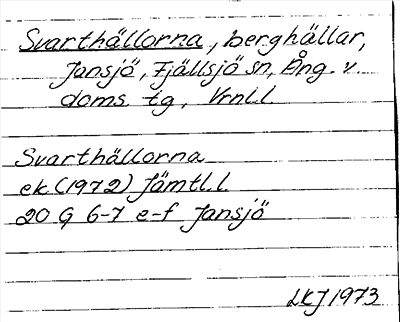 Svarthällorna, berghällar,
Jansjö, Fjällsjö sn, Ång. v.
doms. tg, Vrnl.l.
Svarthällorna
ek (1972) Jämtl.l.
20 G 6-7 e-f Jansjö
LKJ 1973